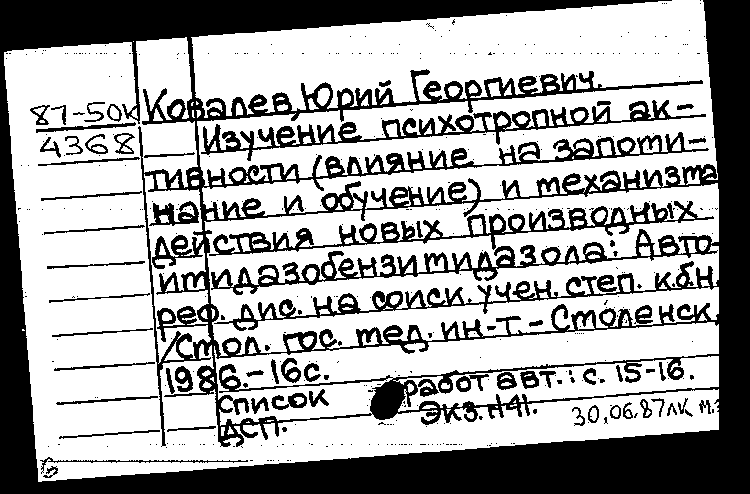 87-50к
4368
Ковалев, Юрий Георгиевич.
Изучение психотропной ак-
тивности (влияние на запоми-
нание и обучение) и механизма
действия новых производных
имидазобензимидазола: Авто-
реф. дис. на соиск. учен. степ. к.б.н.
/Смол. гос. мед. ин-т. - Смоленск,
1986. - 16с.
Список работ авт.: с. 15-16.
ДСП. Экз. №41.
30.06.87 ЛК
6